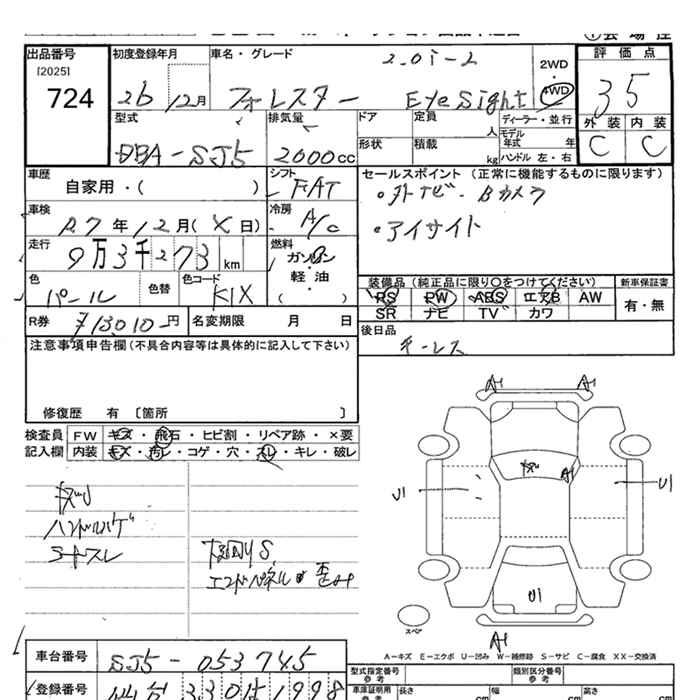 出品番号
[2025]
724
初度登録年月
26 12月
車名・グレード
2.0i-L
フォレスター EyeSight
2WD
4WD
評価点
35
外装 内装
C C
型式
DBA-SJ5
排気量
2000cc
ドア
定員
人
形状
積載
kg
ディーラー・並行
モデル年式 年
ハンドル 左・右
車歴
自家用・( )
シフト
FAT
車検
R7年12月(X日)
冷房
A/C
走行
9万3千273km
燃料
ガソリン
・
軽・油
( )
色
パール
色替
色コード
K1X
R券
円
名変期限 月 日
セールスポイント (正常に機能するものに限ります)
・外ナビ・Bカメラ
・アイサイト
装備品 (純正品に限り○をつけてください)
PS PW ABS エアB AW
SR ナビ TV カワ
新車保証書
有・無
後日品
キーレス
注意事項申告欄 (不具合内容等は具体的に記入して下さい)
修復歴 有 〔箇所 〕
検査員記入欄
FW キズ・飛石・ヒビ割・リペア跡・×要
内装 キズ・汚レ・コゲ・穴・スレ・キレ・破レ
ハンドルハゲ
シートスレ
下回りS
エンドパネル 歪み
A1 A1
A1
U1 U1
U1
スペア
A1
A-キズ E-エクボ U-凹み W-補修跡 S-サビ C-腐食 XX-交換済
車台番号
SJ5-053745
登録番号
型式指定番号
参考
類別区分番号
参考
車庫証明用
参考
長さ
cm
幅
cm
高さ
cm